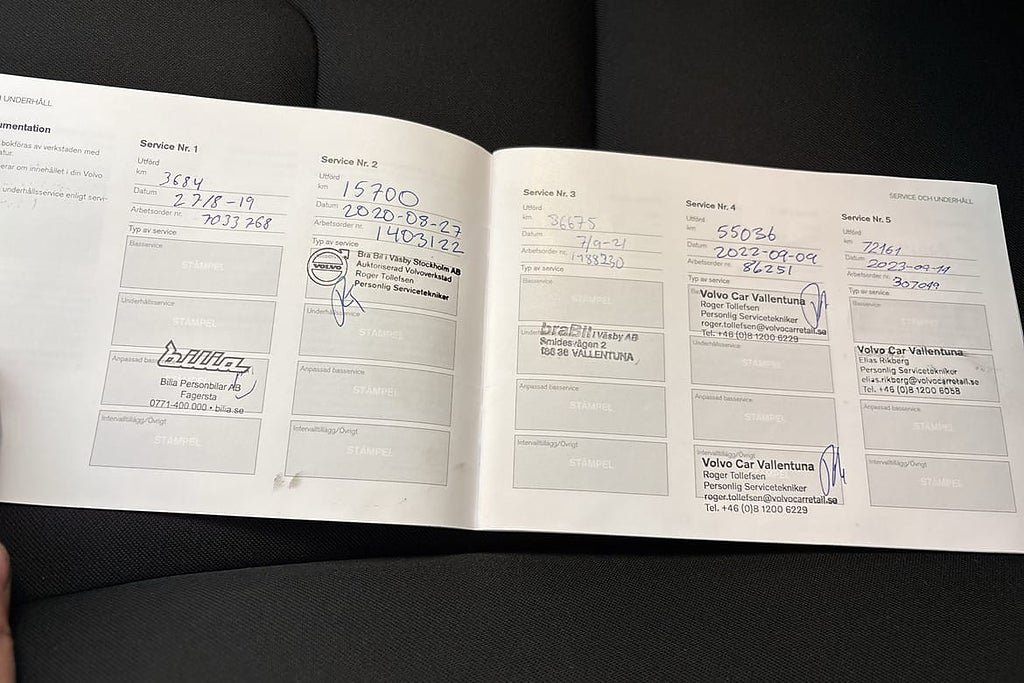 UNDERHÅLL
umentation
bokföras av verkstaden med
atur.
erar om innehållet i din Volvo
underhållsservice enligt servi-
Service Nr. 1
Utförd
km 3684
Datum 27/8-19
Arbetsorder nr. 7033768
Typ av service
Basservice
STÄMPEL
Underhållsservice
STÄMPEL
Anpassad
bilia
Bilia Personbilar AB
Fagersta
0771-400 000 • bilia.se
Intervalltillägg/Övrigt
STÄMPEL
Service Nr. 2
Utförd
km 15700
Datum 2020-08-27
Arbetsorder nr. 1403122
Typ av service
VOLVO
Bra Bil i Väsby Stockholm AB
Auktoriserad Volvoverkstad
Roger Tollefsen
Personlig Servicetekniker
Underhållsservice
STÄMPEL
Anpassad basservice
STÄMPEL
Intervalltillägg/Övrigt
STÄMPEL
Service Nr. 3
Utförd
km 36675
Datum 7/9-21
Arbetsorder nr.
Typ av service
Basservice
STÄMPEL
braBil i Väsby AB
Smidesvägen 2
186 36 VALLENTUNA
Anpassad basservice
STÄMPEL
Intervalltillägg/Övrigt
STÄMPEL
Service Nr. 4
Utförd
km 55036
Datum 2022-09-09
Arbetsorder nr. 86251
Typ av service
Volvo Car Vallentuna
Roger Tollefsen
Personlig Servicetekniker
roger.tollefsen@volvocarretail.se
Tel. +46 (0)8 1200 6229
Underhållsservice
STÄMPEL
Anpassad basservice
STÄMPEL
Intervalltillägg/Övrigt
Volvo Car Vallentuna
Roger Tollefsen
Personlig Servicetekniker
roger.tollefsen@volvocarretail.se
Tel. +46 (0)8 1200 6229
SERVICE OCH UNDERHÅLL
Service Nr. 5
Utförd
km 72161
Datum 2023-09-11
Arbetsorder nr. 307049
Typ av service
Basservice
STÄMPEL
Volvo Car Vallentuna
Elias Rikberg
Personlig Servicetekniker
elias.rikberg@volvocarretail.se
Tel. +46 (0)8 1200 6058
Anpassad basservice
STÄMPEL
Intervalltillägg/Övrigt
STÄMPEL